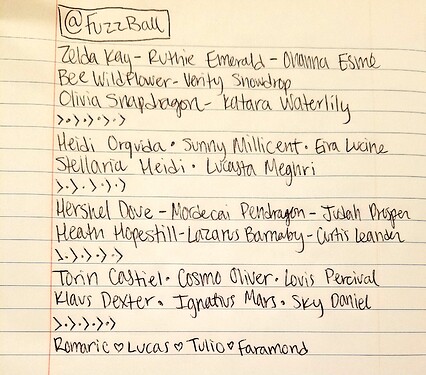 @FuzzBall
Zelda Kay - Ruthie Emerald - Ohanna Esmé
Bee Wildflower - Verity Snowdrop
Olivia Snapdragon - Katara Waterlily
>•>•>•>•>
Heidi Orqvida • Sunny Millicent • Eira Lucine
Stellaria Heidi • Lucasta Meghri
>•>•>•>•>
Hershel Dove - Mordecai Pendragon - Judah Prosper
Heath Hopestill - Lazarus Barnaby - Curtis Leander
>•>•>•>•>
Torin Castiel • Cosmo Oliver • Lovis Percival
Klaus Dexter • Ignatius Mars • Sky Daniel
>•>•>•>•>
Romaric ♡ Lucas ♡ Tulio ♡ Faramond